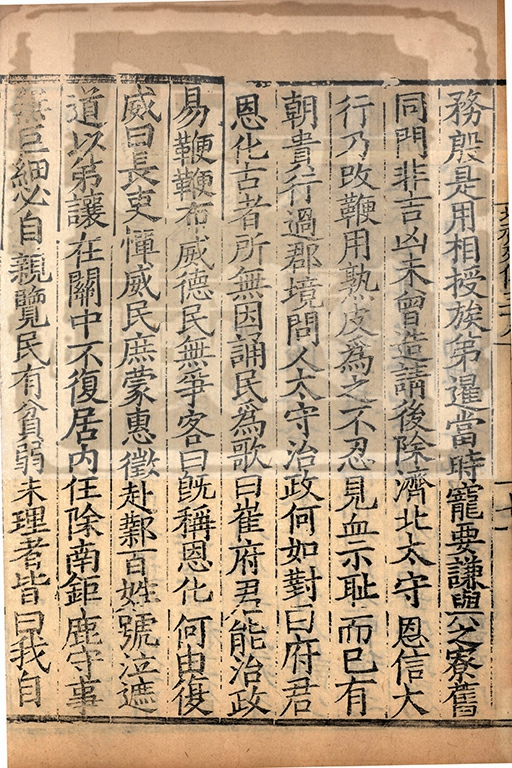 務殷是用相授族弟暹當時寵要謙與之寮舊
同門非吉凶未曾造請後除濟北太守恩信大
行乃改鞭用熟皮為之不忍見血示恥而已有
朝貴行過郡境問人太守治政何如對曰府君
恩化古者所無因誦民為歌曰崔府君能治政
易鞭鞭布威德民無爭客曰既稱恩化何由復
威曰長吏憚威民庶蒙惠徵赴鄴百姓號泣遮
道以弟讓在關中不復居內任除南鉅鹿守事
無巨細必自親覽民有貧弱未理者皆曰我自